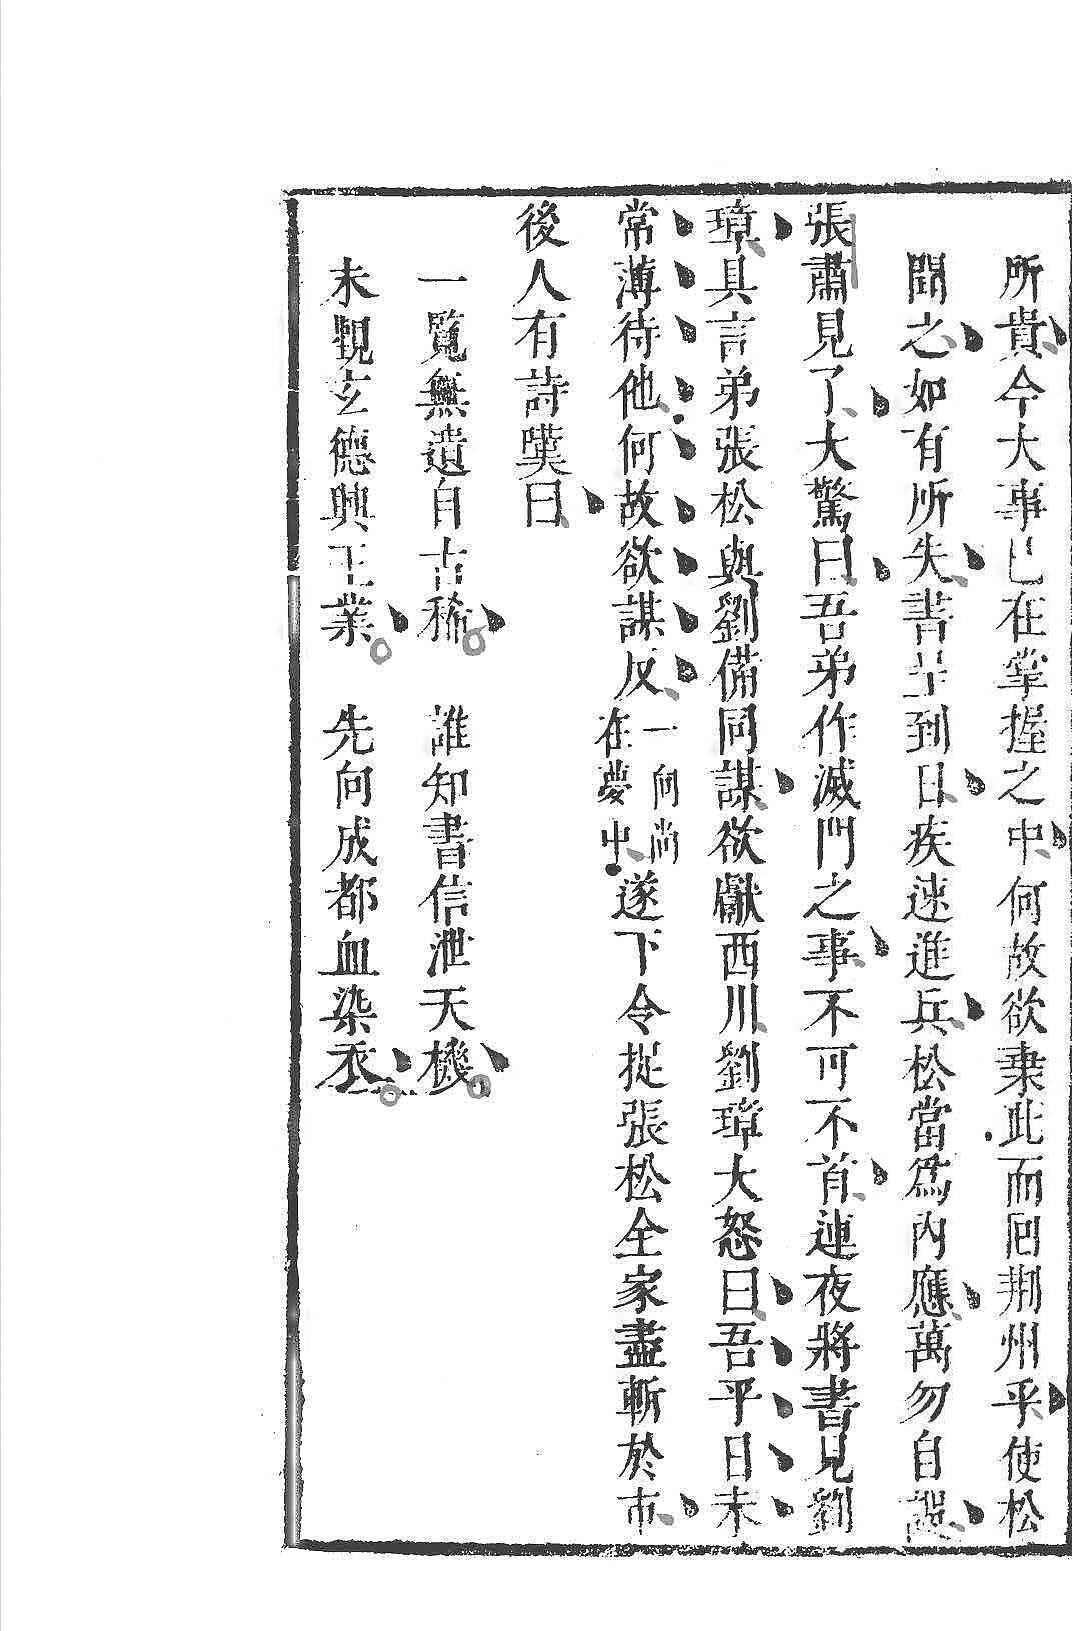 所貴今大事已在掌握之中何故欲棄此而囘荆州乎使松
聞之如有所失書呈到日疾速進兵松當爲內應萬勿自誤
張肅見了大驚曰吾弟作滅門之事不可不首連夜將書見劉
璋具言弟張松與劉備同謀欲獻西川劉璋大怒曰吾平日未
常薄待他何故欲謀反一向尚在夢中遂下令捉張松全家盡斬於市
後人有詩嘆曰
一覽無遺自古稀　誰知書信泄天機
未觀玄德興王業　先向成都血染衣